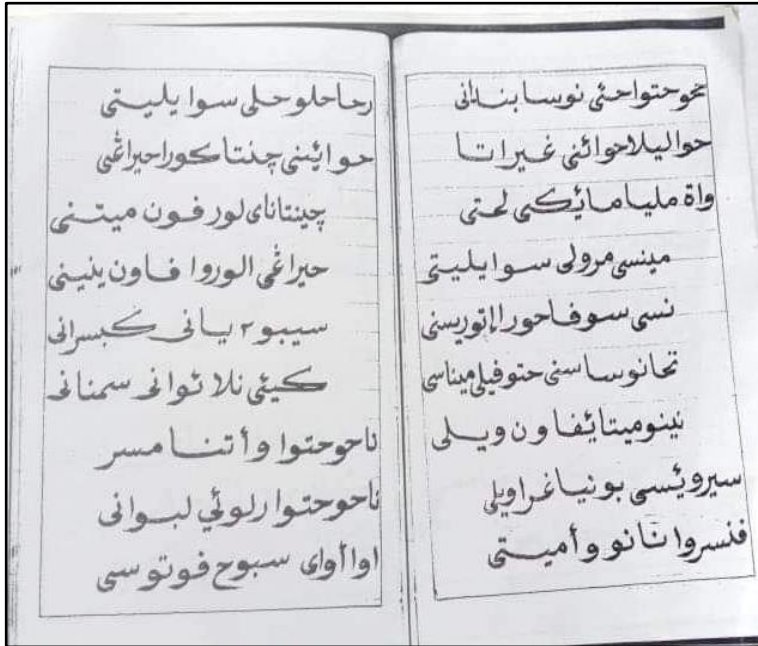 نحوحتواحئي نوسا بندانى
حواليلاحوائنى غيراتا
واة مليامائكى لحتى
مينسى مرولى سوايليتى
نسى سوفاحورا إتوريسنى
تحانوساسنى حتوفيلى ميناسى
نينوميتائفاون ويلى
سيرويئسى بونياغراويلى
فنسروا نانو وأميتى
رحاحلوحلى سوايليتى
حوائينى چنتاكوراحيراڠى
چينتاناى لورفون ميتنى
حيراڠى الوروا فاون ينينى
سيبو٢يانى كبسرانى
كيئى نلائوانى سمنانى
ناحوحتوا وأتنا مسر
ناحوحتوا رلوئي لبوانى
اواأواى سبوح فوتوسى